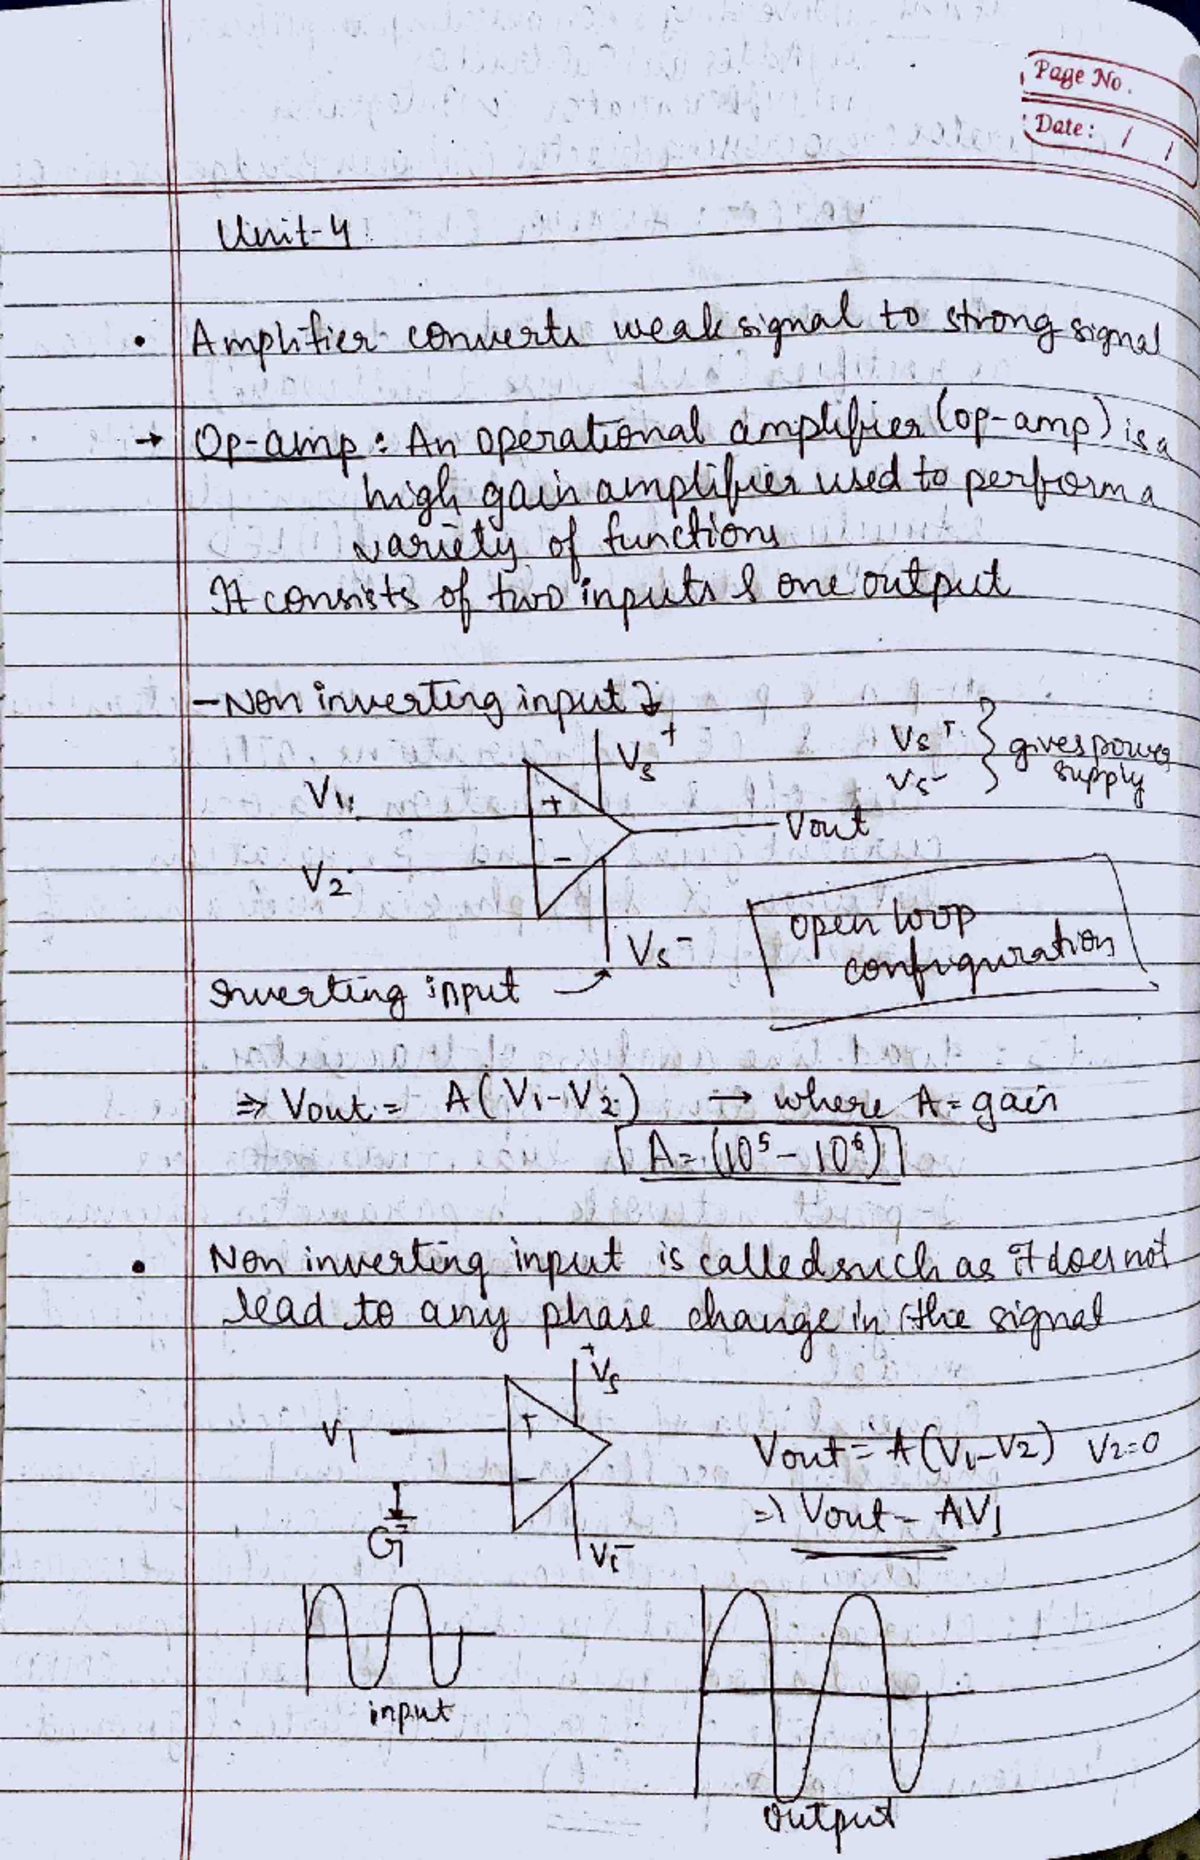 Page No.
Date: / /
Unit-4
• Amplifier converts weak signal to strong signal
→ Op-amp: An operational amplifier (op-amp) is a
high gain amplifier used to perform a
variety of functions
It consists of two inputs & one output
- Non inverting input
Vs+
Vs+ } gives power
Vs- } supply
V1
+
Vout
V2
-
Vs-
open loop
configuration
Inverting input →
⇒ Vout = A(V1-V2) → where A = gain
A = (10⁵ - 10⁶)
• Non inverting input is called such as it does not
lead to any phase change in the signal
+Vs
V1
+
Vout = A(V1-V2) V2=0
-
⇒ Vout = AV1
G
input
output